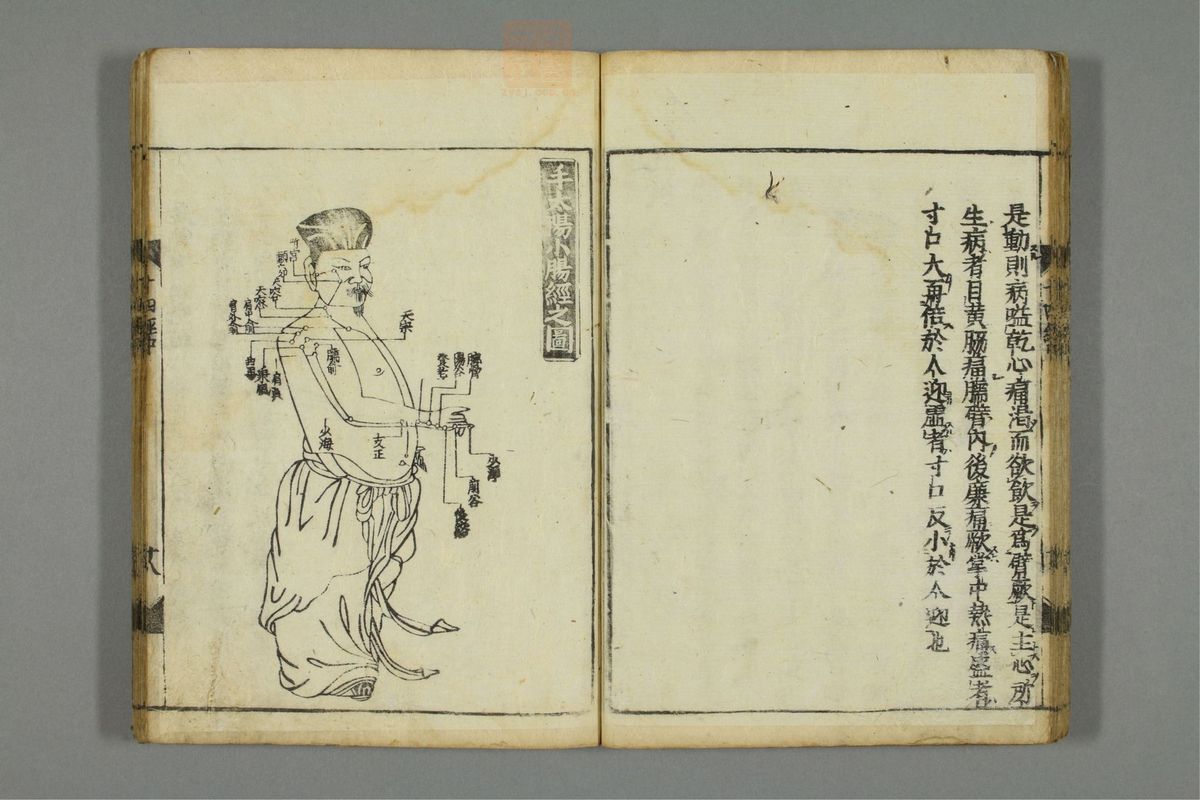 是動則病嗌乾心痛渴而欲飲是爲臂厥是主心所
生病者目黄脇痛臑臂內後廉痛厥掌中熱痛盛者
寸口大再倍於人迎虛者寸口反小於人迎也
手太陽小腸經之圖
聽宮
天容
天窓
肩中俞
肩外俞
曲垣
秉風
臑俞
天宗
肩貞
少海
支正
養老
陽谷
腕骨
少澤
前谷
後谿
十四經中